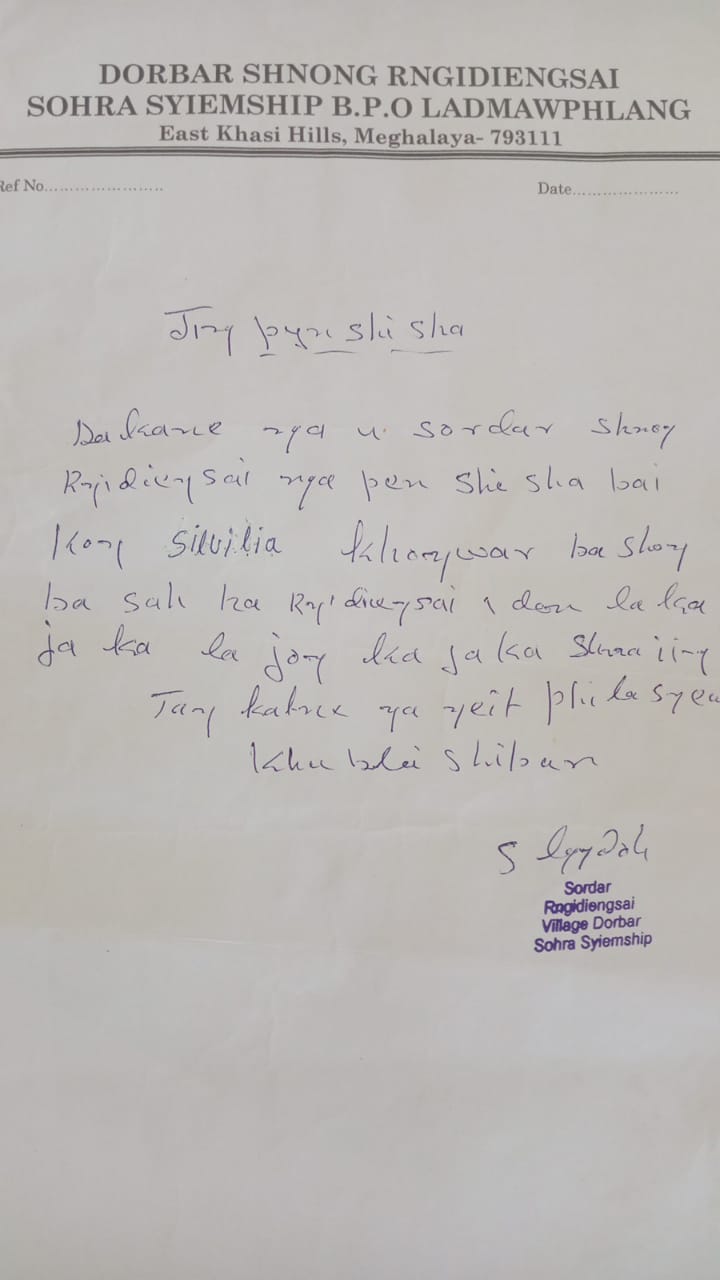 DORBAR SHNONG RNGIDIENGSAI
SOHRA SYIEMSHIP B.P.O LADMAWPHLANG
East Khasi Hills, Meghalaya- 793111
Ref No......................
Date....................
Jing pyn shi sha
Da kane nga u sordar Shnong
Rngidiengsai nga pen shi sha bai
Kong Silvilia Khongwar ba shong
ba sah ha Rngidiengsai don la ka
ja ka la jong ka ja ka Shna iing
Tang katne nga ngeit phi la
Khu blei shiban
S
Sordar
Rngidiengsai
Village Dorbar
Sohra Syiemship